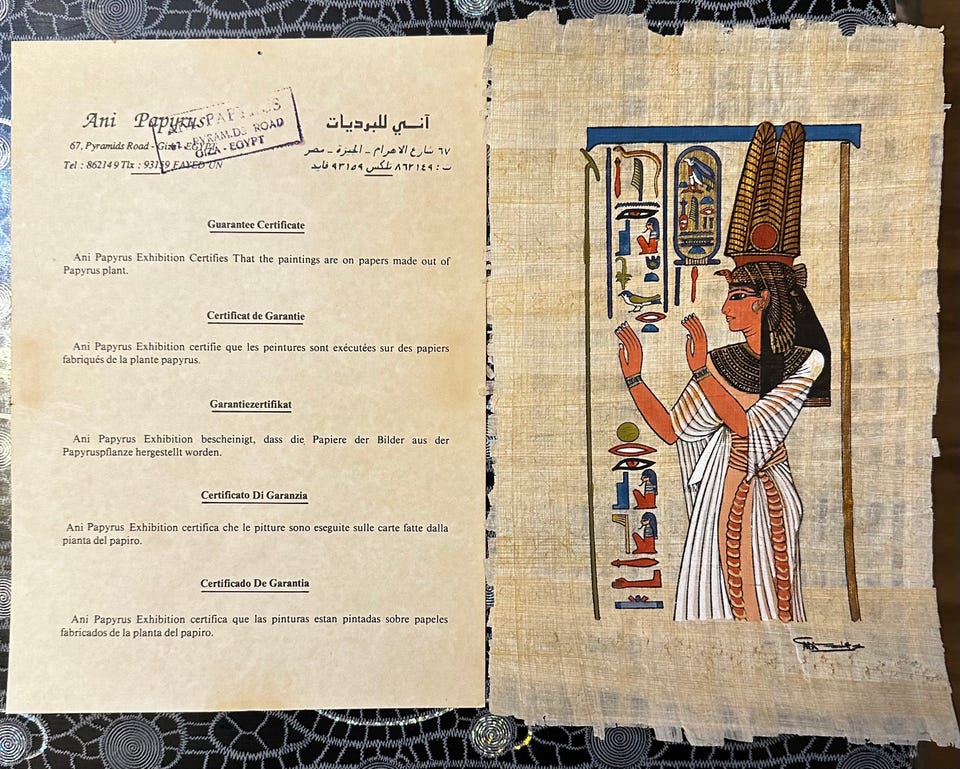 Ani Papyrus
آنـي للبرديات
ANI PAPYRUS
67, PYRAMIDS ROAD
GIZA - EGYPT
67, Pyramids Road - Giza EGYPT
٦٧ شارع الاهرام - الجيزة - مصر
Tel : 862149 Tlx : 93159 FAYED UN
ت : ٨٦٢١٤٩ تلكس ٩٣١٥٩ فايد
Guarantee Certificate
Ani Papyrus Exhibition Certifies That the paintings are on papers made out of
Papyrus plant.
Certificat de Garantie
Ani Papyrus Exhibition certifie que les peintures sont exécutées sur des papiers
fabriqués de la plante papyrus.
Garantiezertifikat
Ani Papyrus Exhibition bescheinigt, dass die Papiere der Bilder aus der
Papyruspflanze hergestellt worden.
Certificato Di Garanzia
Ani Papyrus Exhibition certifica che le pitture sono eseguite sulle carte fatte dalla
pianta del papiro.
Certificado De Garantia
Ani Papyrus Exhibition certifica que las pinturas estan pintadas sobre papeles
fabricados de la planta del papiro.